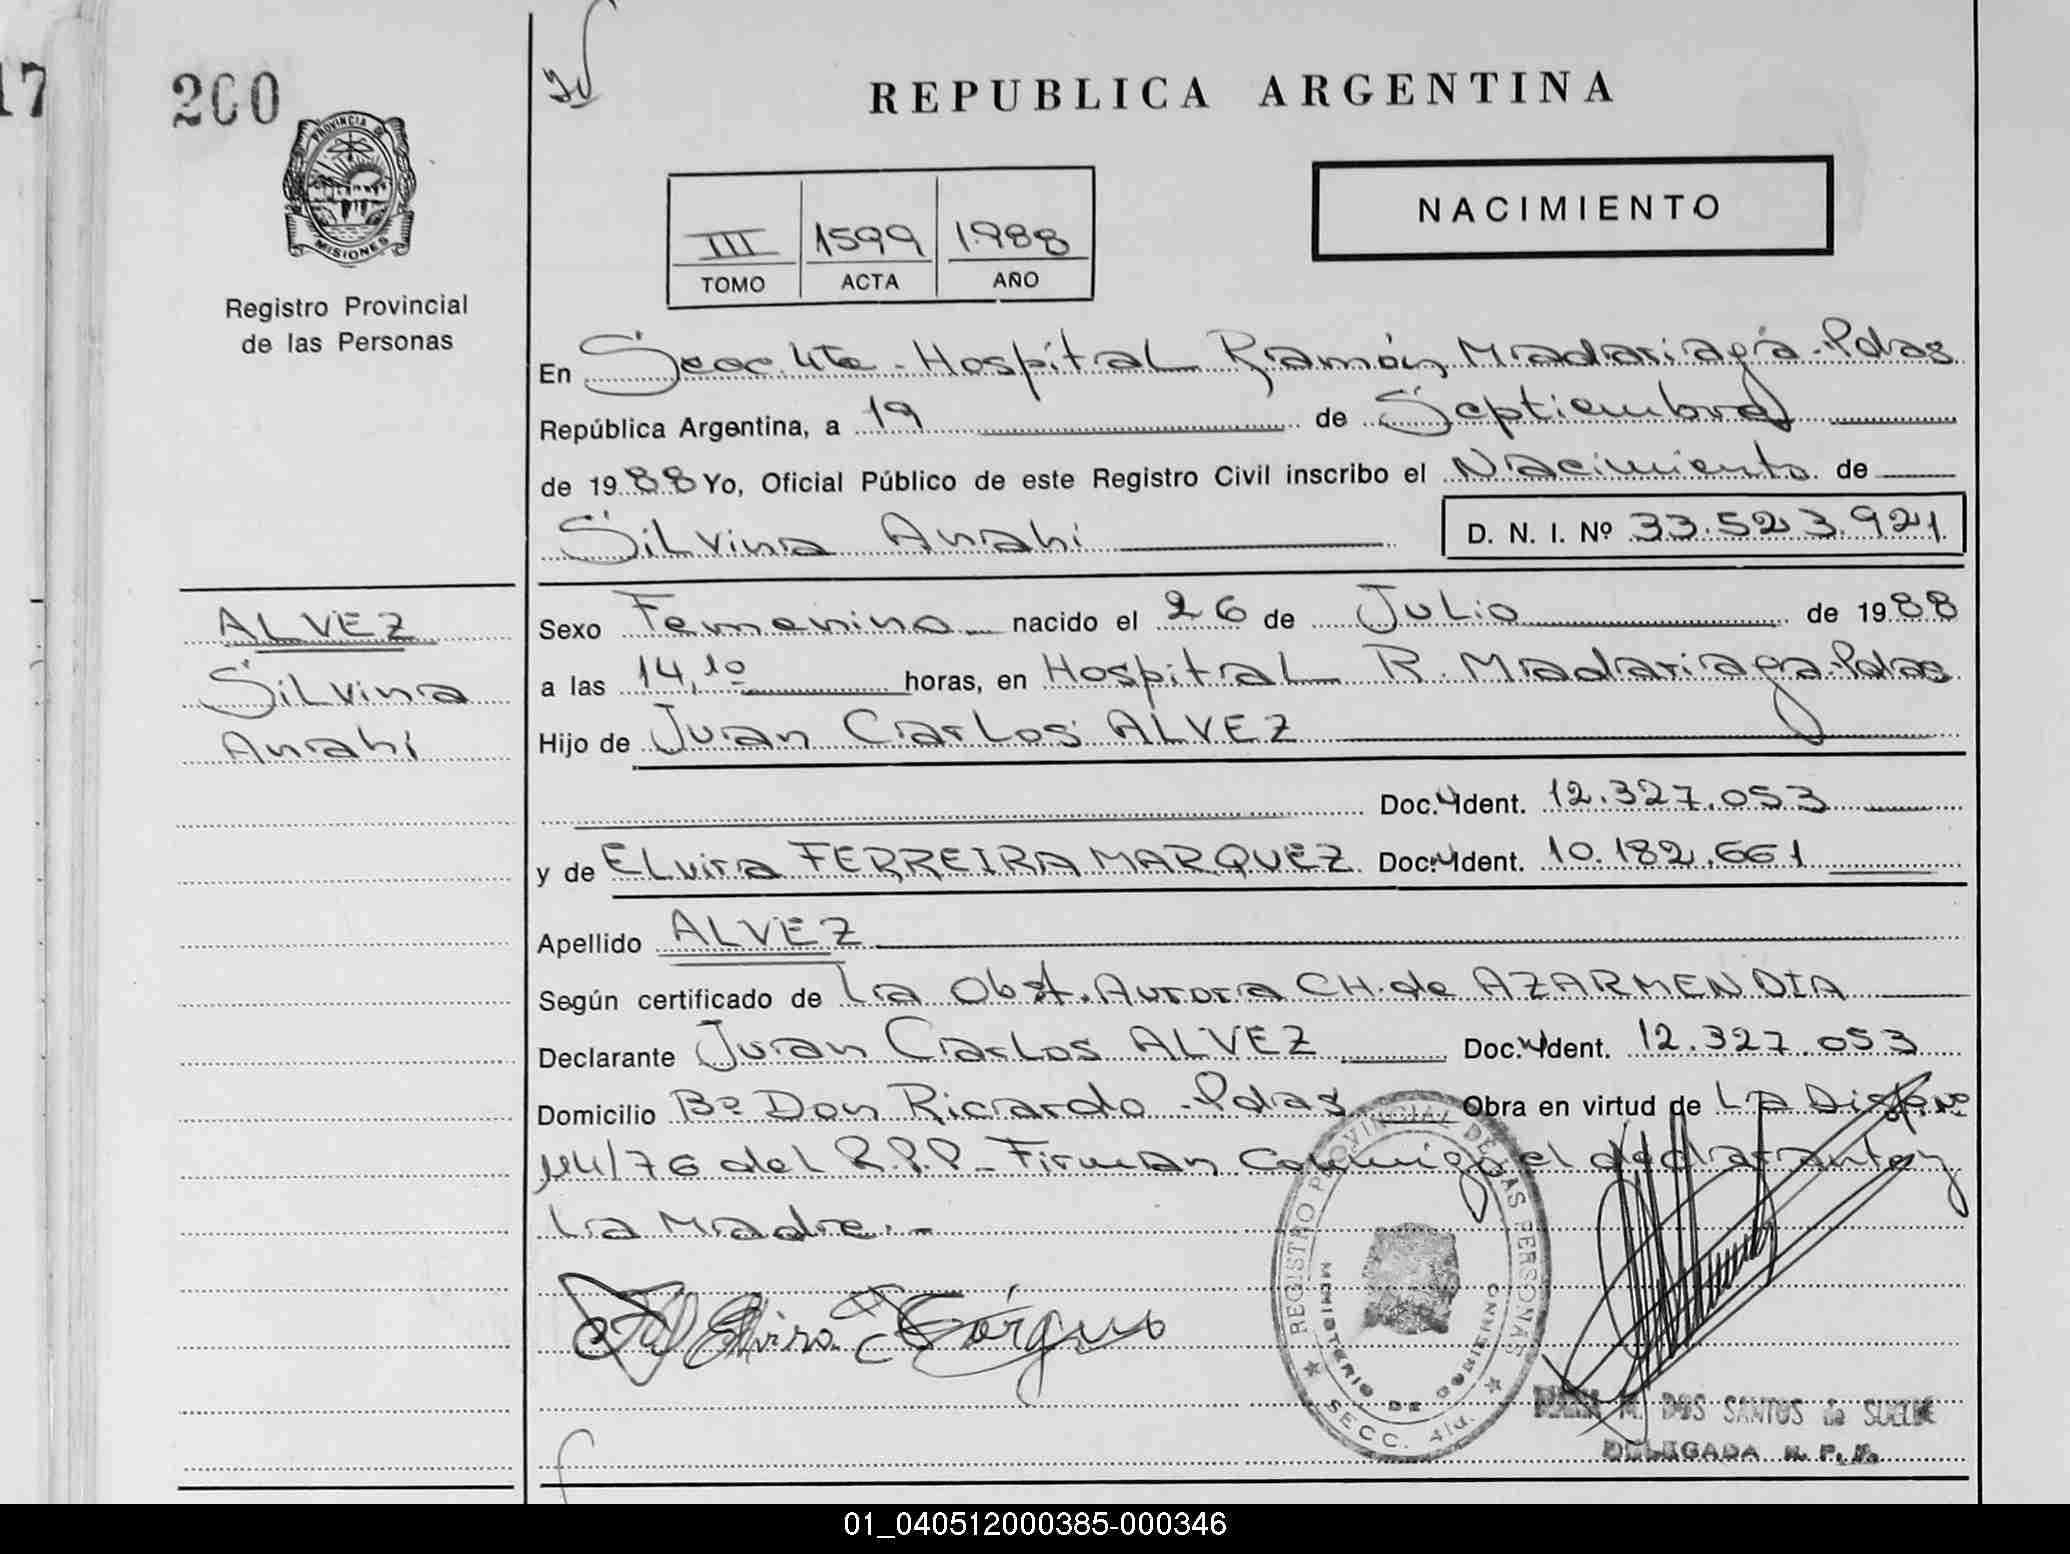 17
200
PROVINCIA DE
MISIONES
Registro Provincial
de las Personas
REPUBLICA ARGENTINA
NACIMIENTO
III 1599 1.988
TOMO ACTA AÑO
En Secc. 4ta - Hospital Ramón Madariaga - Pdas
República Argentina, a 19 de Septiembre
de 1988 Yo, Oficial Público de este Registro Civil inscribo el Nacimiento de
Silvina Anahi D. N. I. Nº 33.523.921
ALVEZ
Silvina
Anahi
Sexo Femenino nacido el 26 de Julio de 1988
a las 14,10 horas, en Hospital R. Madariaga - Pdas
Hijo de Juan Carlos ALVEZ
Doc. Ident. 12.327.053
y de Elvira FERREIRA MARQUEZ Doc. Ident. 10.182.661
Apellido ALVEZ
Según certificado de la Obst. Aurora CH. de AZARMENDIA
Declarante Juan Carlos ALVEZ Doc. Ident. 12.327.053
Domicilio Bº Don Ricardo - Pdas Obra en virtud de La Disp. Nº
114/76 del R.P.P - Firman conmigo el declarante y
la Madre.-
Elvira
REGISTRO PROVINCIAL DE LAS PERSONAS
MINISTERIO DE GOBIERNO
SECC. 4ta.
M. DOS SANTOS de
DELEGADA R. P. P.
01_040512000385-000346